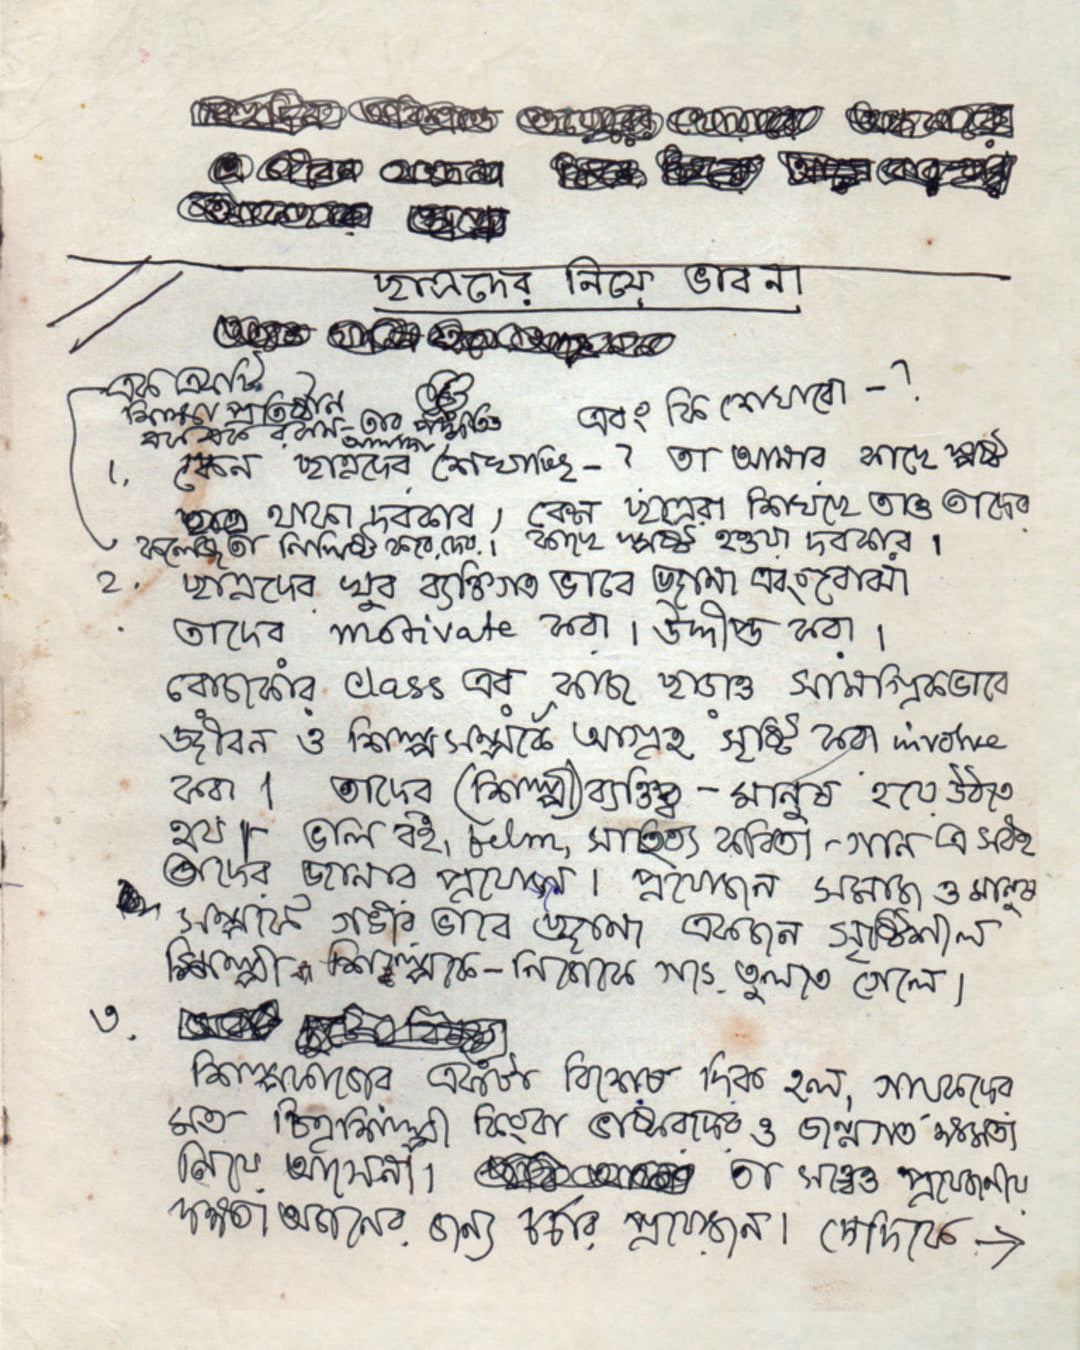 ছাত্রদের নিয়ে ভাবনা
এক একটি
শিক্ষা প্রতিষ্ঠান
এক এক রকম - তার পদ্ধতিও
আলাদা
এবং কি শেখাবো - ?
1. কেন ছাত্রদের শেখাচ্ছি - ? তা আমার কাছে স্পষ্ট
থাকা দরকার। কেন ছাত্ররা শিখছে তাও তাদের
কলেজ তা নির্দিষ্ট করে দেয়। কাছে স্পষ্ট হওয়া দরকার।
2. ছাত্রদের খুব ব্যক্তিগত ভাবে জানা এবং বোঝা
তাদের motivate করা। উদ্দীপ্ত করা।
রোজকার class এর কাজ ছাড়াও সামগ্রিকভাবে
জীবন ও শিল্প সম্পর্কে আগ্রহ সৃষ্টি করা involve
করা। তাদের (শিল্পী) ব্যক্তিত্ব - মানুষ হয়ে উঠতে
হয়। ভাল বই, film, সাহিত্য কবিতা - গান এ সবই
তাদের জানার প্রয়োজন। প্রয়োজন সমাজ ও মানুষ
সম্পর্কে গভীর ভাবে জানা একজন সৃষ্টিশীল
শিল্পী শিল্পকে - নিজেকে গড়ে তুলতে গেলে।
৩.
শিল্পকাজের একটা বিশেষ দিক হল, গায়কদের
মত চিত্রশিল্পী কিংবা ভাস্করদেরও জন্মগত ক্ষমতা
নিয়ে আসেনা। তা সত্ত্বেও প্রয়োজনীয়
দক্ষতা অর্জনের জন্য চর্চার প্রয়োজন। সেদিকে →